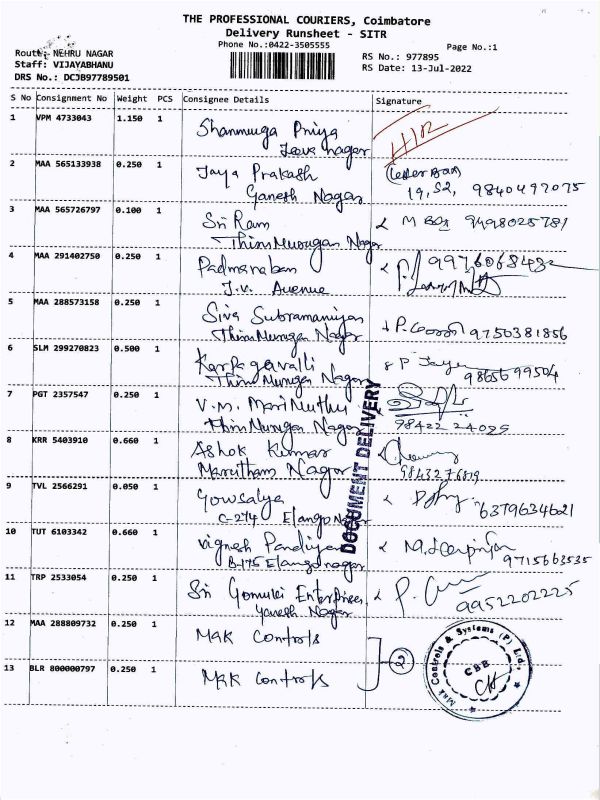 THE PROFESSIONAL COURIERS, Coimbatore
Delivery Runsheet - SITR
Phone No.:0422-3505555
Page No.:1
Route: NEHRU NAGAR
RS No.: 977895
Staff: VIJAYABHANU
RS Date: 13-Jul-2022
DRS No.: DCJB97789501
S No Consignment No Weight PCS Consignee Details Signature
1 VPM 4733043 1.150 1 Shanmuga Priya
nagar
2 MAA 565133938 0.250 1 Jaya Prakash
Ganesh Nagar 19, S2, 9840497075
3 MAA 565726797 0.100 1 Sri Ram M Box 9498025781
ThiruMurugan Nagar
4 MAA 291402750 0.250 1 Padmanaban 9976068482
J.V. Avenue
5 MAA 288573158 0.250 1 Siva Subramaniyan
ThiruMurugan Nagar 9750381856
6 SLM 299270823 0.500 1 Karpagavalli
ThiruMurugan Nagar 9865699504
7 PGT 2357547 0.250 1 V.M. MariMuthu
ThiruMurugan Nagar 98422 24025
8 KRR 5403910 0.660 1 Ashok Kumar
Marutham Nagar 9843276819
9 TVL 2566291 0.050 1 Gowsalya
C-274 Elango Nagar 6379634621
10 TUT 6103342 0.660 1 Vignesh Pandiyan
B-175 Elango nagar 9715663535
11 TRP 2533054 0.250 1 Sri Gomuki Enterprises
Ganesh Nagar 9952202225
12 MAA 288809732 0.250 1 Mak Controls
2
13 BLR 800000797 0.250 1 Mak Controls
DOCUMENT DELIVERY
Mak Controls & Systems (P) Ltd.
CBB